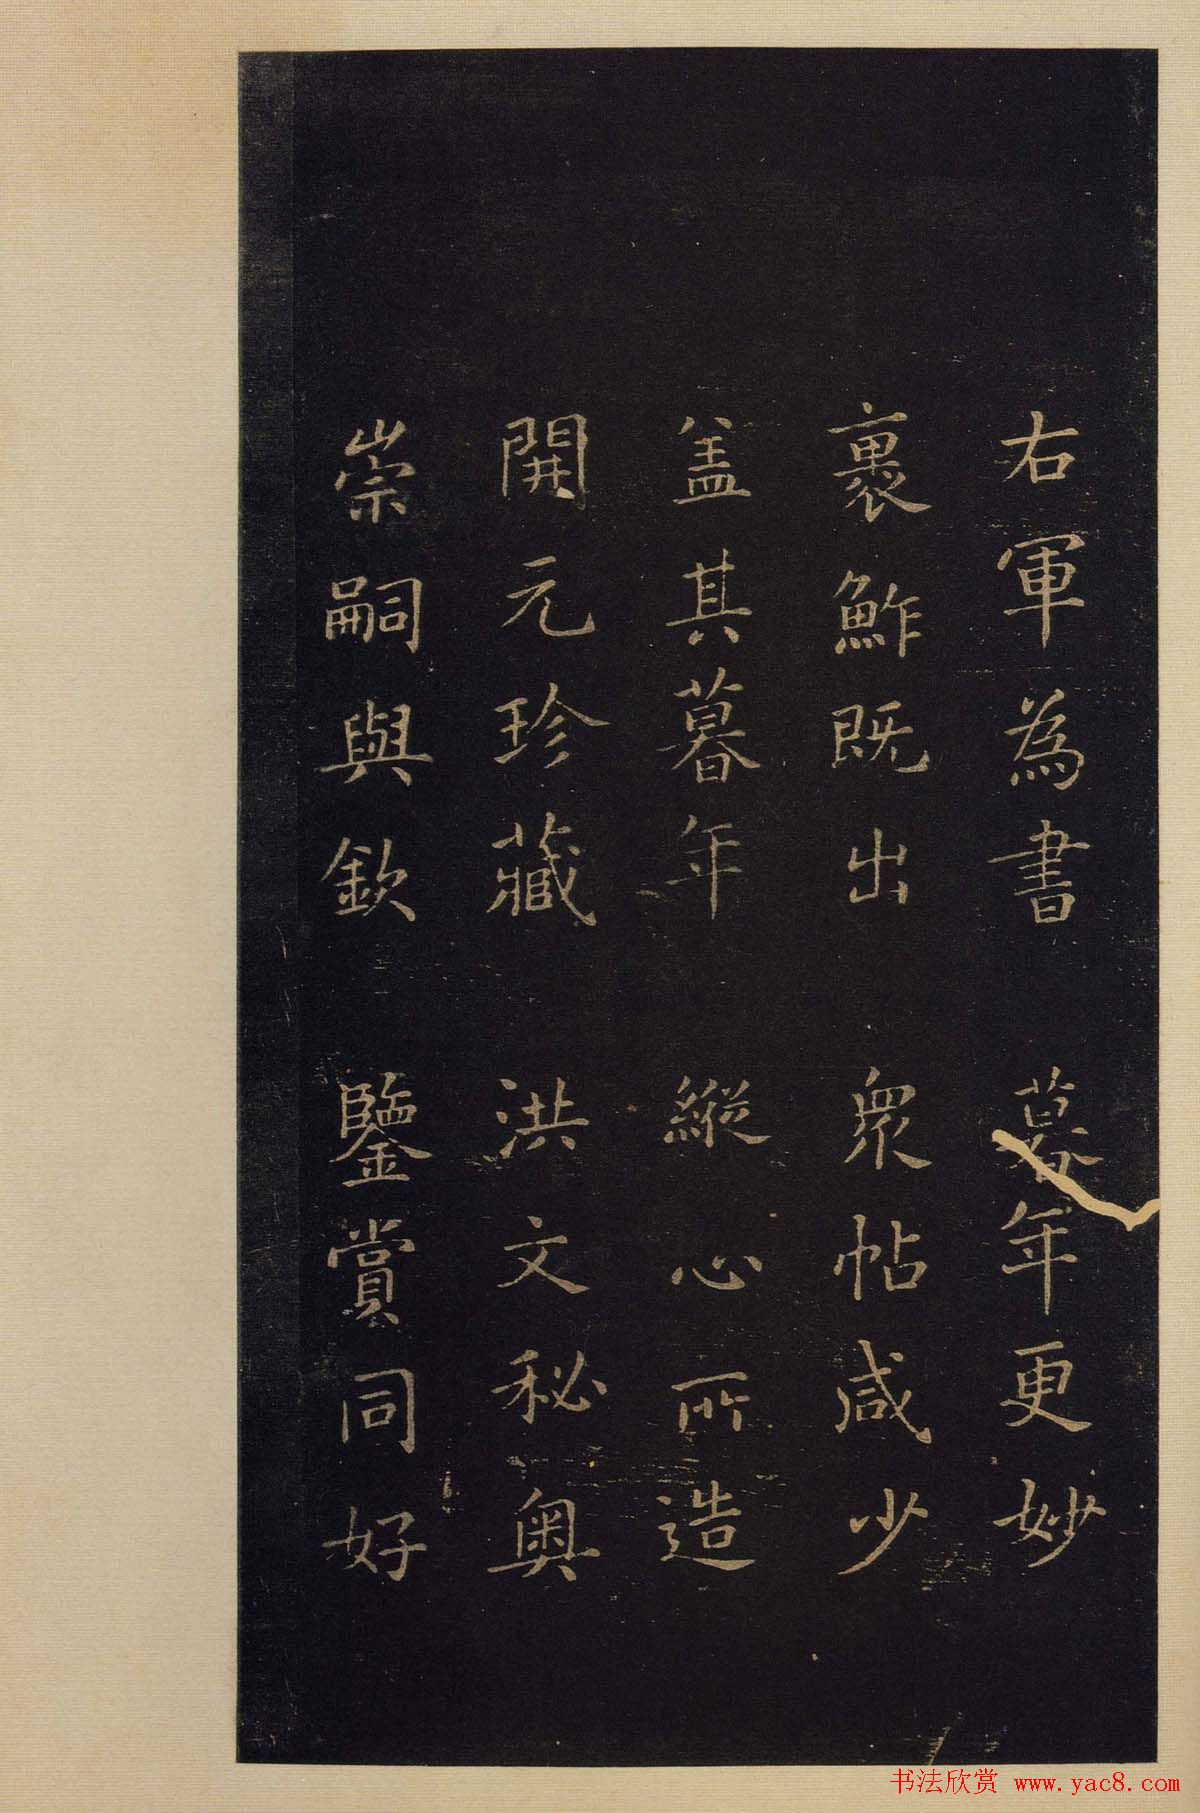 右軍為書暮年更妙
裹鮓既出眾帖咸少
盖其暮年縱心所造
開元珍藏洪文秘奧
崇嗣與欽鑒賞同好
书法欣赏 www.yac8.com